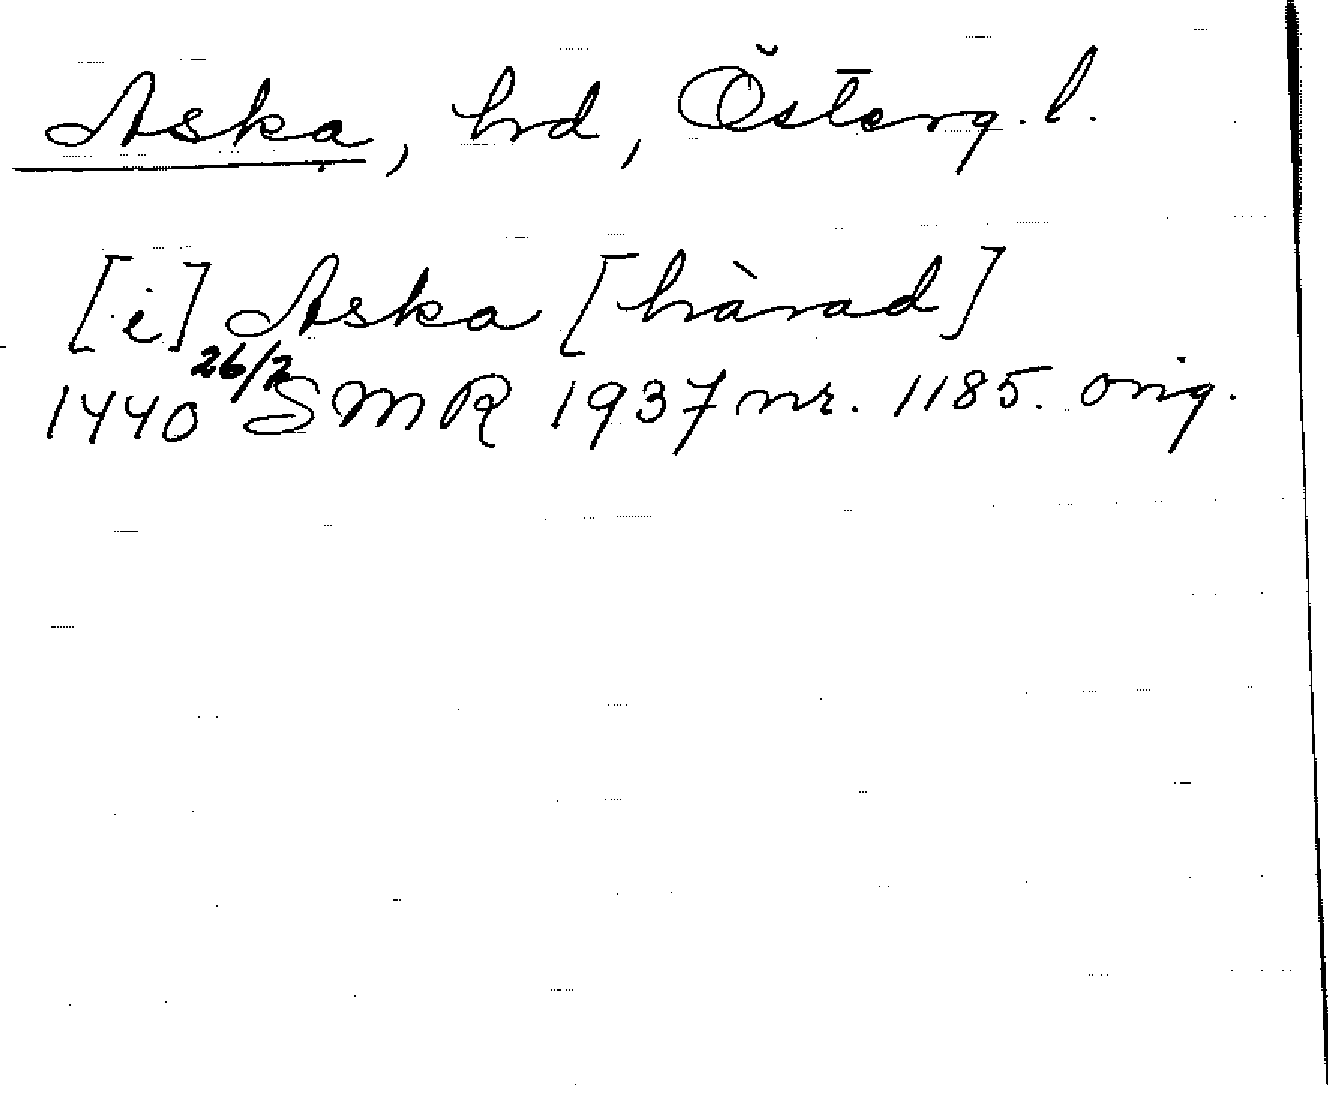 Aska, hrd, Österg.l.
[i] Aska [hàrad]
1440 26/2 SMR 1937 nr. 1185. orig.